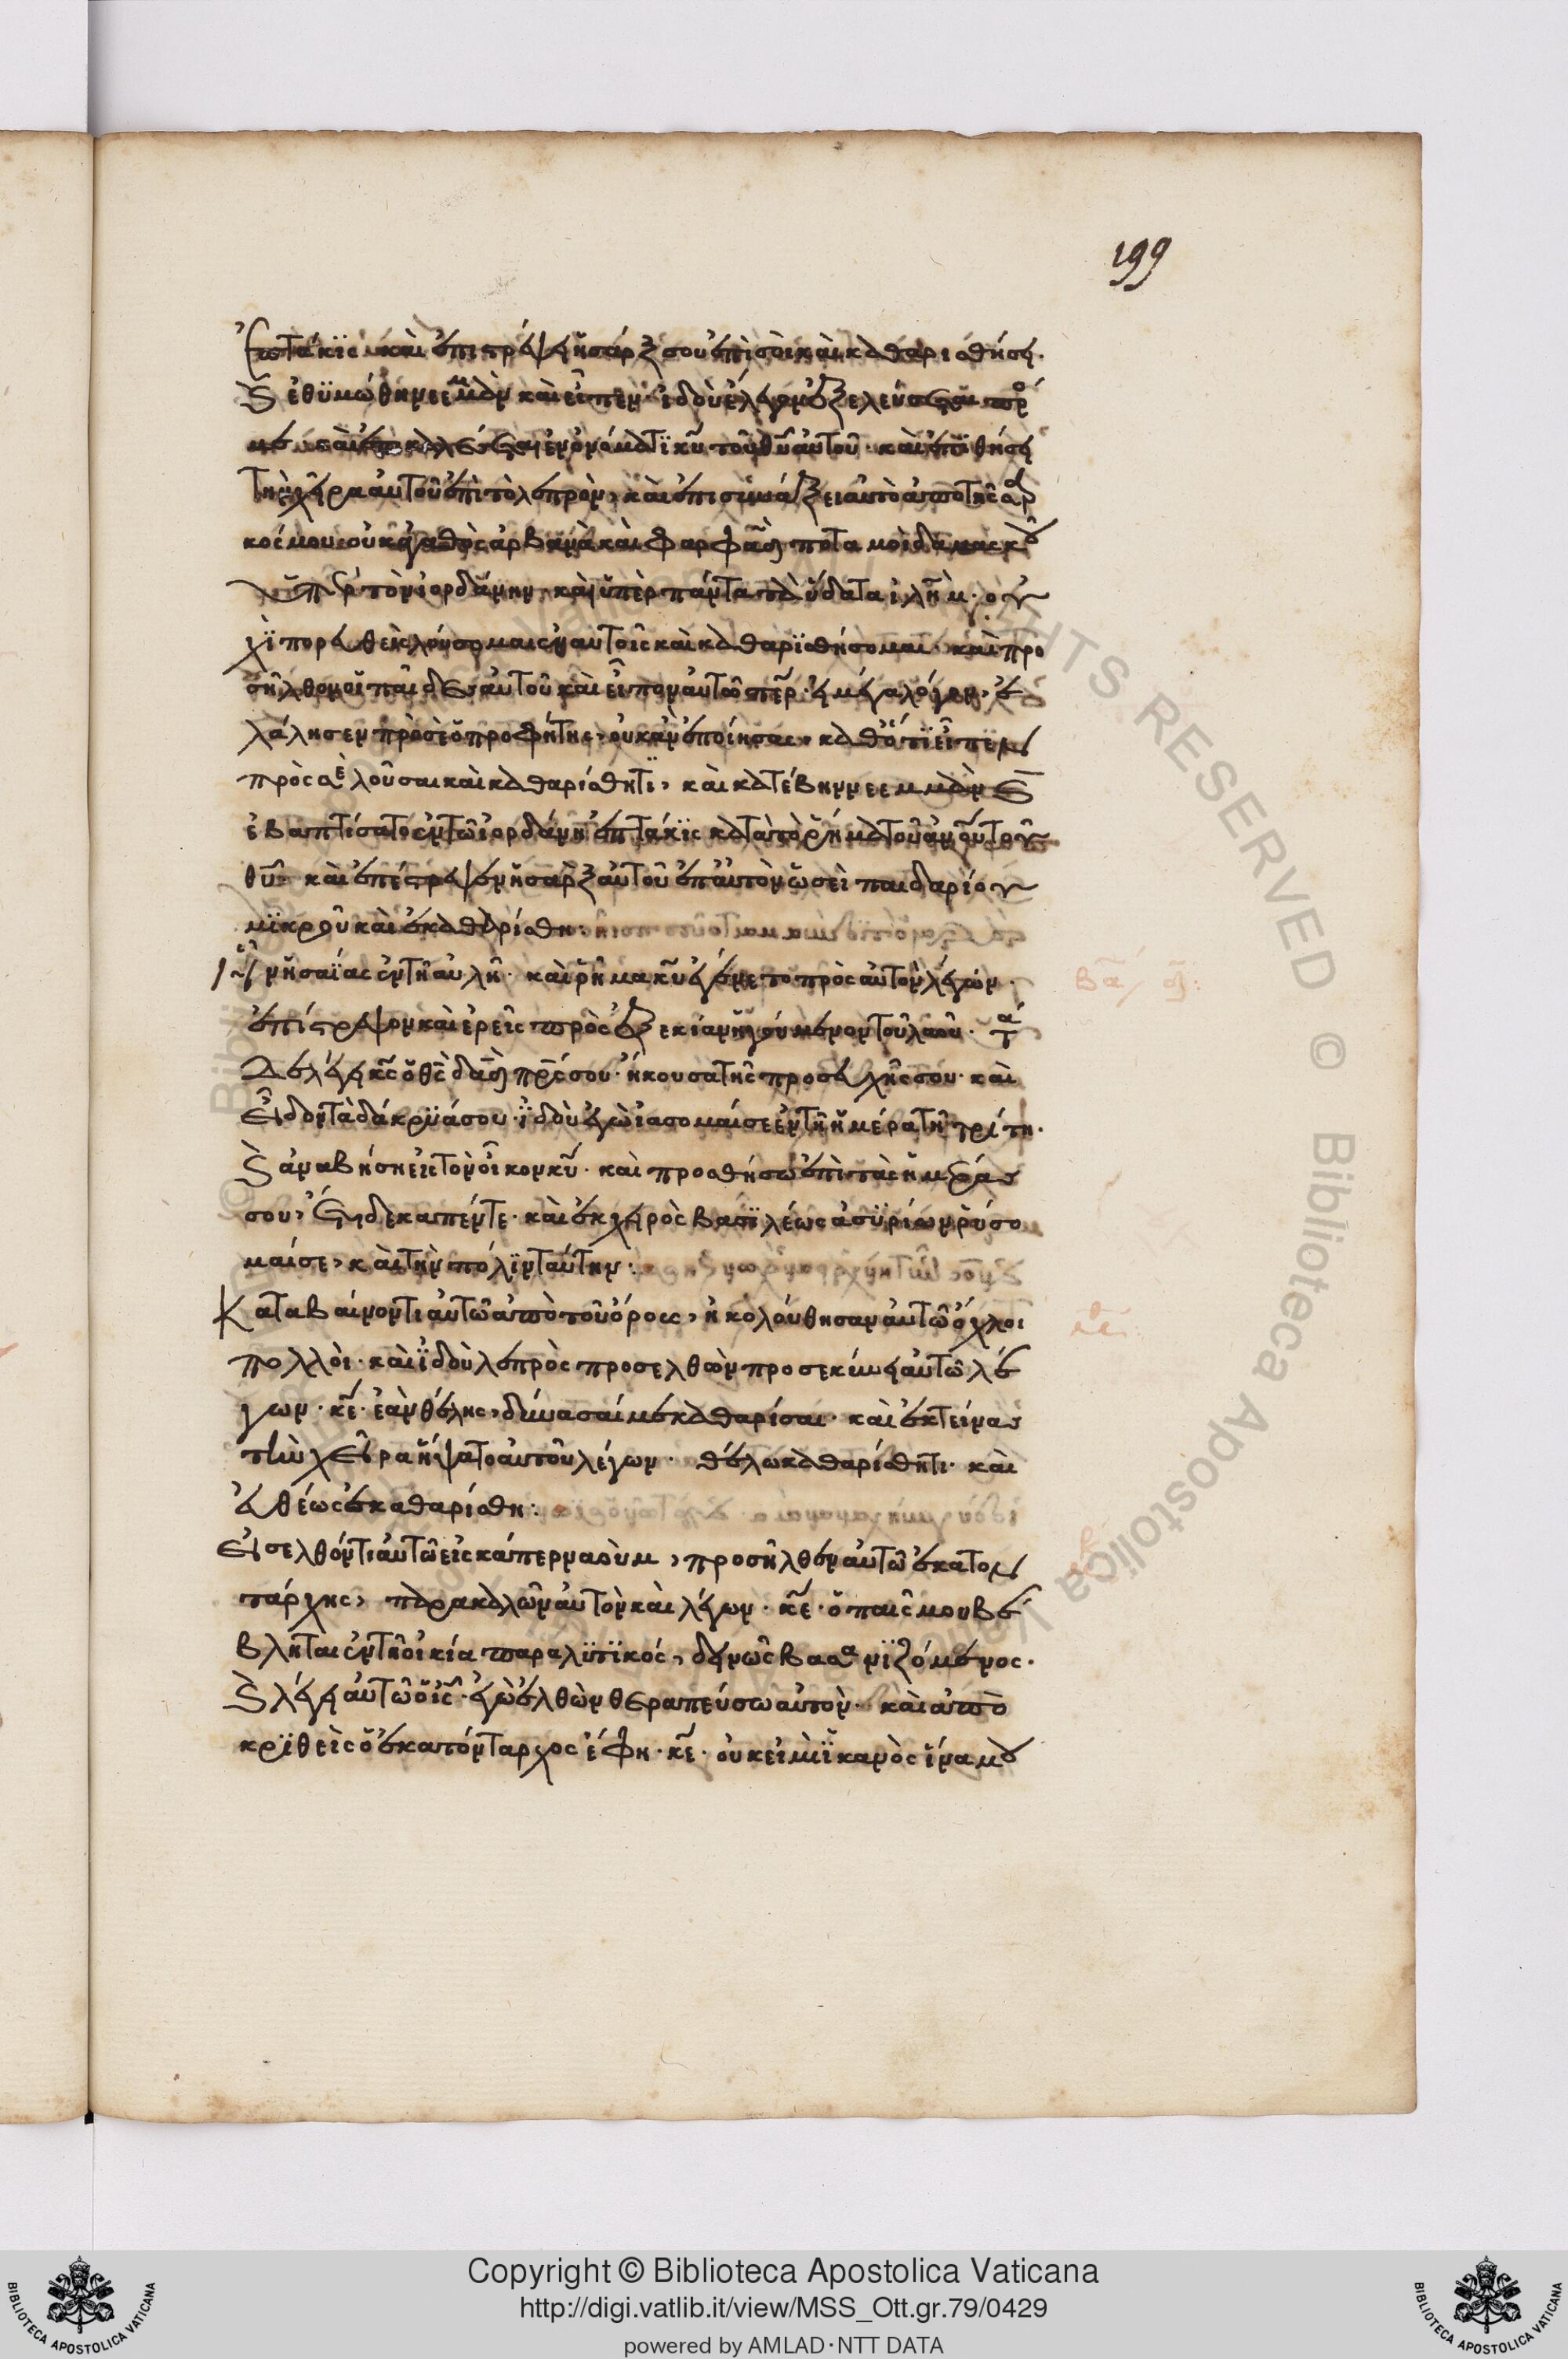 199
ἑπτάκις καὶ ἐπιστρέψει ἡ σάρξ σου ἐπὶ σοὶ καὶ καθαρισθήσῃ.
Ϛ ἐθυμώθη νεεμὰν καὶ εἶπεν· ἰδοὺ ἔλεγον ἐξελεύσεται πρός
με καὶ ἐπικαλέσεται ἐν ὀνόματι κυ τοῦ θυ αὐτοῦ· καὶ ἐπιθήσει
τὴν χεῖρα αὐτοῦ ἐπὶ τὸ λεπρὸν, καὶ ἐπισυνάξει αὐτὸ ἀπὸ τῆς σαρ
κός μου· οὐκ ἀγαθὸς ἀρβανὰ καὶ φαρφὰδ ποταμοὶ δαμασκοῦ
ὑπὲρ τὸν ἰορδάνην, καὶ ὑπὲρ πάντα τὰ ὕδατα ιλημ· οὐ
χὶ πορευθεὶς λούσομαι ἐν αὐτοῖς καὶ καθαρισθήσομαι· καὶ προ
σῆλθον οἱ παῖδες αὐτοῦ καὶ εἶπον αὐτῶ περ· εἰ μέγα λόγον ἐ
λάλησεν πρὸς σὲ ὁ προφήτης, οὐκ ἂν ἐποίησας, καθότι εἶπεν
πρὸς σὲ λοῦσαι καὶ καθαρίσθητι, καὶ κατέβη νεεμμὰν Ϛ
ἐβαπτίσατο ἐν τῶ ἰορδάνη ἑπτάκις κατὰ τὸ ῥῆμα τοῦ ἀνου τοῦ
θυ· καὶ ἐπέστρεψεν ἡ σὰρξ αὐτοῦ ἐπ' αὐτὸν ὡσεὶ παιδαρίου
μικροῦ καὶ ἐκαθαρίσθη:
ἦν ἡσαΐας ἐν τῆ αὐλῆ· καὶ ῥῆμα κυ ἐγένετο πρὸς αὐτὸν λέγων·
ἐπίστρεψον καὶ ἐρεῖς πρὸς ἐζεκίαν ἡγούμενον τοῦ λαοῦ· τά
δε λέγει κς ὁ θς δαδ πρς σου· ἤκουσα τῆς προσευχῆς σου· καὶ
εἶδον τὰ δάκρυά σου· ἰδοὺ ἐγὼ ἰάσομαί σε ἐν τῆ ἡμέρα τῆ τρίτη·
Ϛ ἀναβήση εἰς τὸν οἶκον κυ· καὶ προσθήσω ἐπὶ τὰς ἡμέρας
σου, ἔτη δεκαπέντε· καὶ ἐκ χειρὸς βασιλέως ἀσυρίων ῥύσο
μαί σε, καὶ τὴν πόλιν ταύτην:
Καταβαίνοντι αὐτῶ ἀπὸ τοῦ ὄρους, ἠκολούθησαν αὐτῶ ὄχλοι
πολλοὶ· καὶ ἰδοὺ λεπρὸς προσελθὼν προσεκύνει αὐτῶ λέ
γων· κε· ἐὰν θέλης, δύνασαί με καθαρίσαι· καὶ ἐκτείνας
τὴν χεῖρα ἥψατο αὐτοῦ λέγων· θέλω καθαρίσθητι· καὶ
εὐθέως ἐκαθαρίσθη:
Εἰσελθόντι αὐτῶ εἰς καπερναοὺμ, προσῆλθεν αὐτῶ ἑκατον
τάρχης, παρακαλῶν αὐτὸν καὶ λέγων· κε· ὁ παῖς μου βέ
βληται ἐν τῆ οἰκία παραλυτικός, δεινῶς βασανιζόμενος·
Ϛ λέγει αὐτῶ ὁ ις· ἐγὼ ἐλθὼν θεραπεύσω αὐτὸν· καὶ ἀπο
κριθεὶς ὁ ἑκατόνταρχος ἔφη· κε· οὐκ εἰμὶ ἱκανὸς ἵνα μου
© Biblioteca Apostolica Vaticana
RIGHTS RESERVED
Copyright © Biblioteca Apostolica Vaticana
http://digi.vatlib.it/view/MSS_Ott.gr.79/0429
powered by AMLAD·NTT DATA
BIBLIOTECA APOSTOLICA VATICANA
BIBLIOTECA APOSTOLICA VATICANA